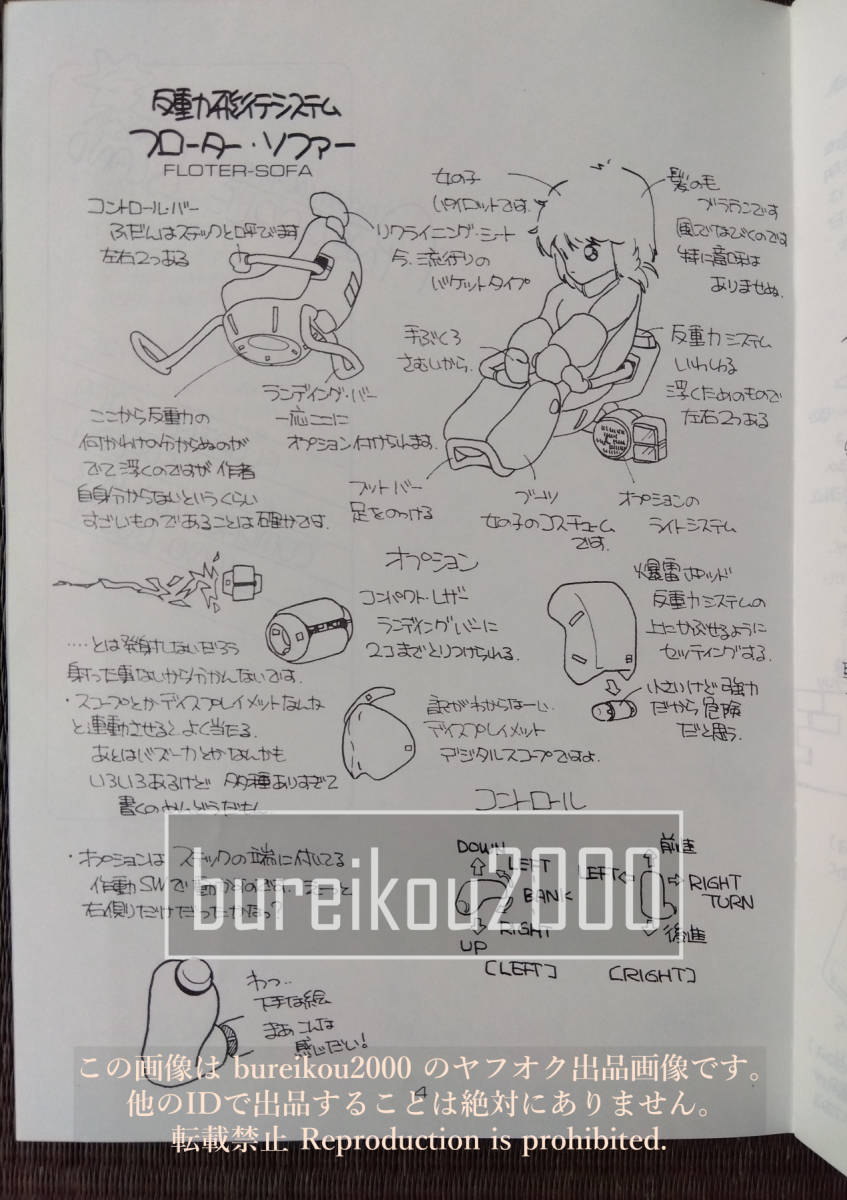 反重力飛行システム
フローター・ソファー
FLOTER-SOFA
コントロール・バー
ふだんはスティックと呼びます
左右2つある
リクライニング・シート
今、流行りの
バケットタイプ
女の子
パイロットです.
髪の毛
ブラウンです
風でなびくのです
特に意味は
ありませぬ.
手ぶくろ
さむいから.
反重力システム
いわゆる
浮くためのもので
左右2つある
ここから反重力の
何かわけの分からぬのが
でて浮くのですが作者
自身分からないというくらい
すごいものであることは確かです.
ランディング・バー
一応ここに
オプション付けられます.
フットバー
足をのっける
ブーツ
女の子のコスチューム
です.
オプションの
ライトシステム
オプション
コンパクト・レザー
ランディングバーに
2コまでとりつけられる.
爆雷ポッド
反重力システムの
上にかぶせるように
セッティングする.
小さいけど強力
だから危険
だと思う.
‥‥とは発射しないだろう
射った事ないから分かんないです.
・スコープとかディスプレイメットなんか
と連動させると、よく当たる.
あとはバズーカとかなんかも
いろいろあるけど 多種ありすぎて
書くのめんどうだもん
訳がわからなーい.
ディスプレイメット
デジタルスコープですよ.
コントロール
・オプションは スティックの端に付いてる
作動SWで
右側だけだったかなっ?
DOWN
LEFT
BANK
RIGHT
UP
[LEFT]
前進
LEFT
RIGHT
TURN
後進
[RIGHT]
bureikou2000
わっ‥
下手な絵
まあこんな
感じだい!
4
この画像は bureikou2000 のヤフオク出品画像です。
他のIDで出品することは絶対にありません。
転載禁止 Reproduction is prohibited.